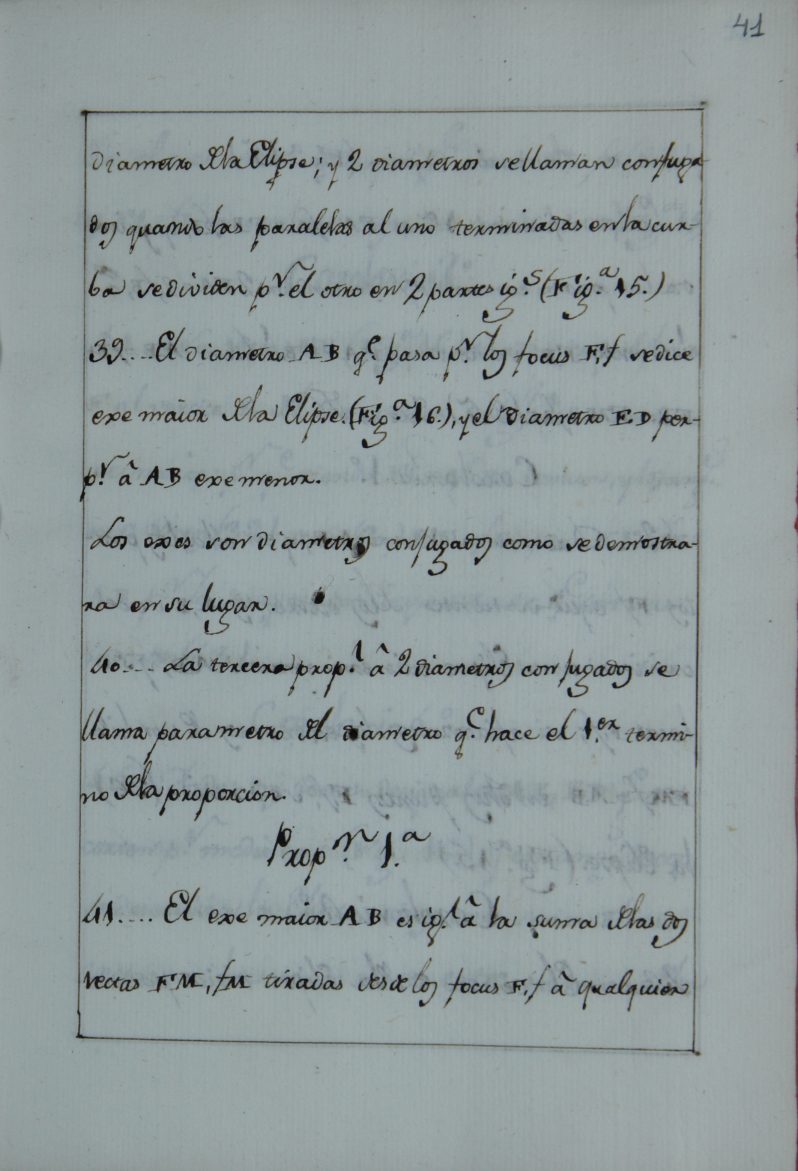 41
diametro dela Elipse; y 2 diametros se llaman conjuga-
dos quando las paralelas al uno terminadas en la cur-
ba se dividen p.r el otro en 2 partes ig.s (Fig.a 15.)
39.... El diametro AB q.e pasa p.r los focus F, f se dice
exe maior dela Elipse. (Fig.a 16.), y el diametro ED per-
p.r â AB exe menor.
Los exes son diametros conjugados como se demostra-
ra en su lugar.
40.... La tercera prop.l â 2 diametros conjugados se
llama parametro del diametro q.e hace el 1.er termi-
no dela proporcion.
Prop.n 1.a
41.... El exe maior AB es ig.l â la suma delas dos
rectas FM, fM tiradas desde los focus F, f â qualquier